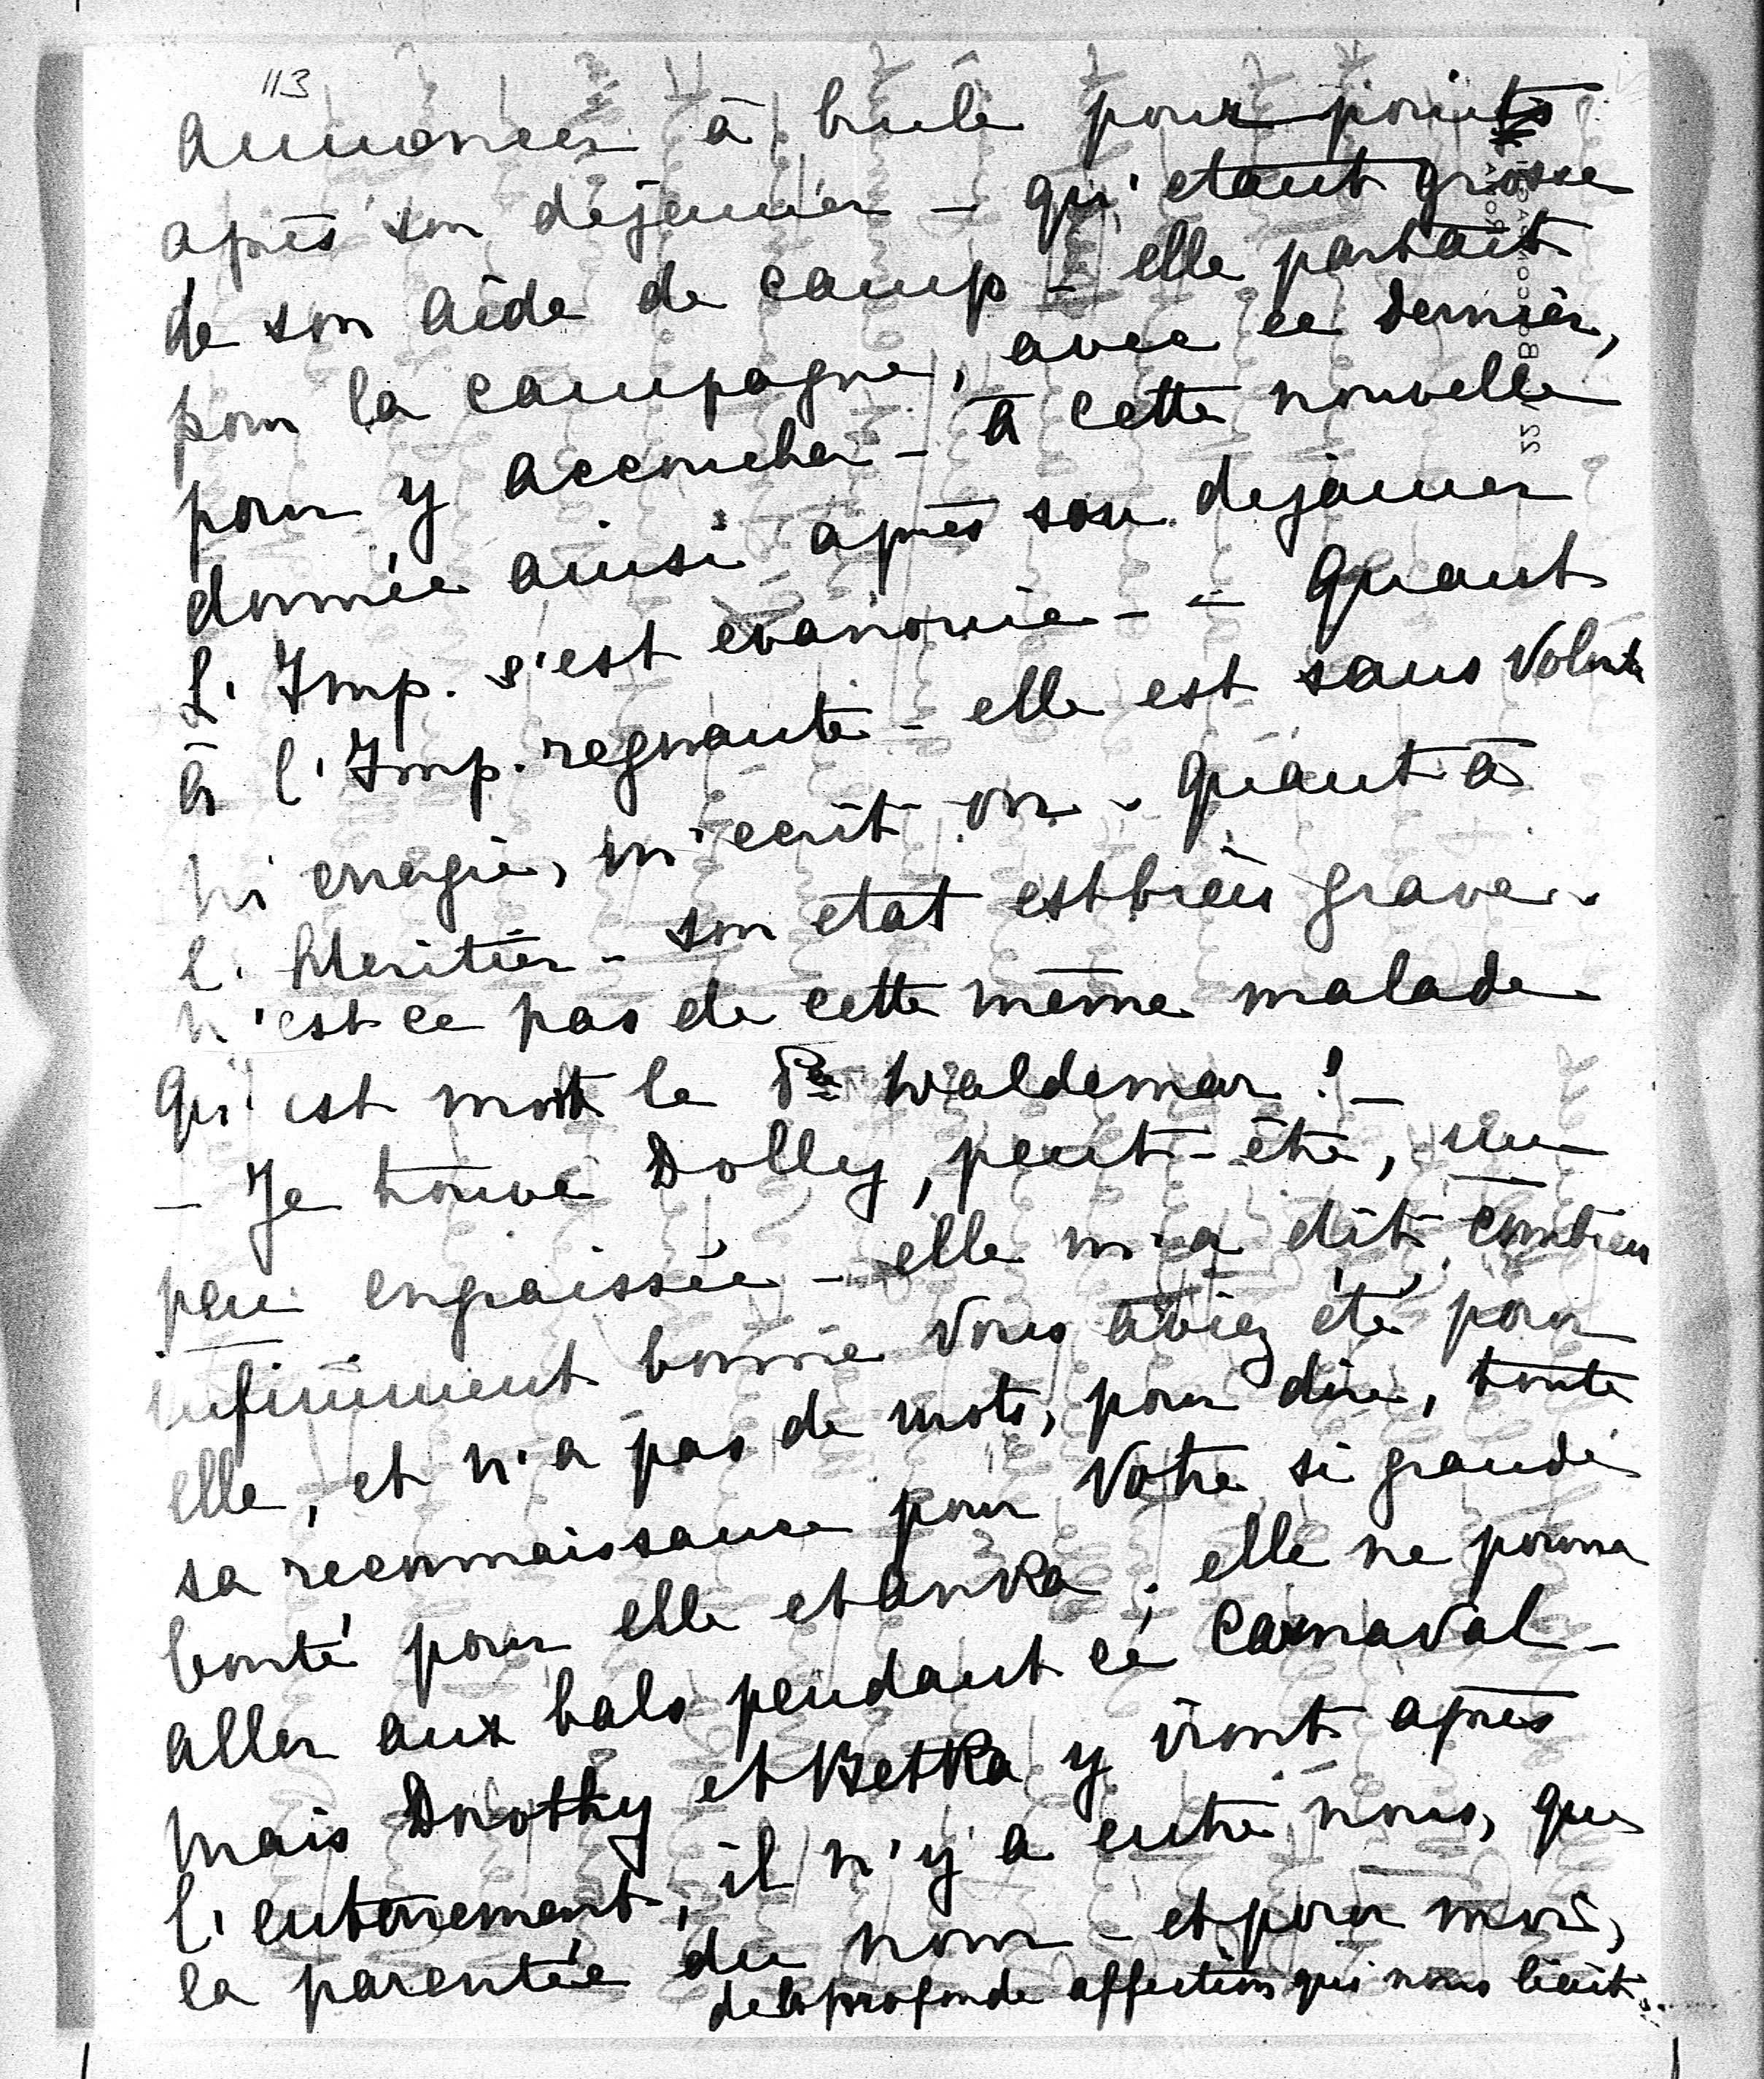 113
annoncer à brule pour points
après son déjeuner – qu'etant grosse
de son aide de camp – elle partait
pour la campagne, avec ce dernier,
pour y accoucher – à cette nouvelle
donnée ainsi après son dejeuner
L'Imp. s'est evanouie – – quant
à l'Imp. regnante – elle est sans volonté
ni energie, m'ecrit on – quant à
l'Heritier – son etat est bien grave –
n'est ce pas de cette même malade
qu'est mort le Pce Waldemar! –
– Je trouve Dolly, peut-être, un
peu engraissée – elle m'a dit combien
infiniment bonne vous aviez été pour
elle, et n'a pas de mots, pour dire, toute
sa reconnaissance pour votre si grande
bonté pour elle et anka; elle ne pourra
aller aux bals pendant ce Carnaval –
mais Dorothy et Betka y iront après
l'enterrement, il n'y a entre nous, que
la parentée du nom – et pour moi,
de la profonde affection qui nous liait